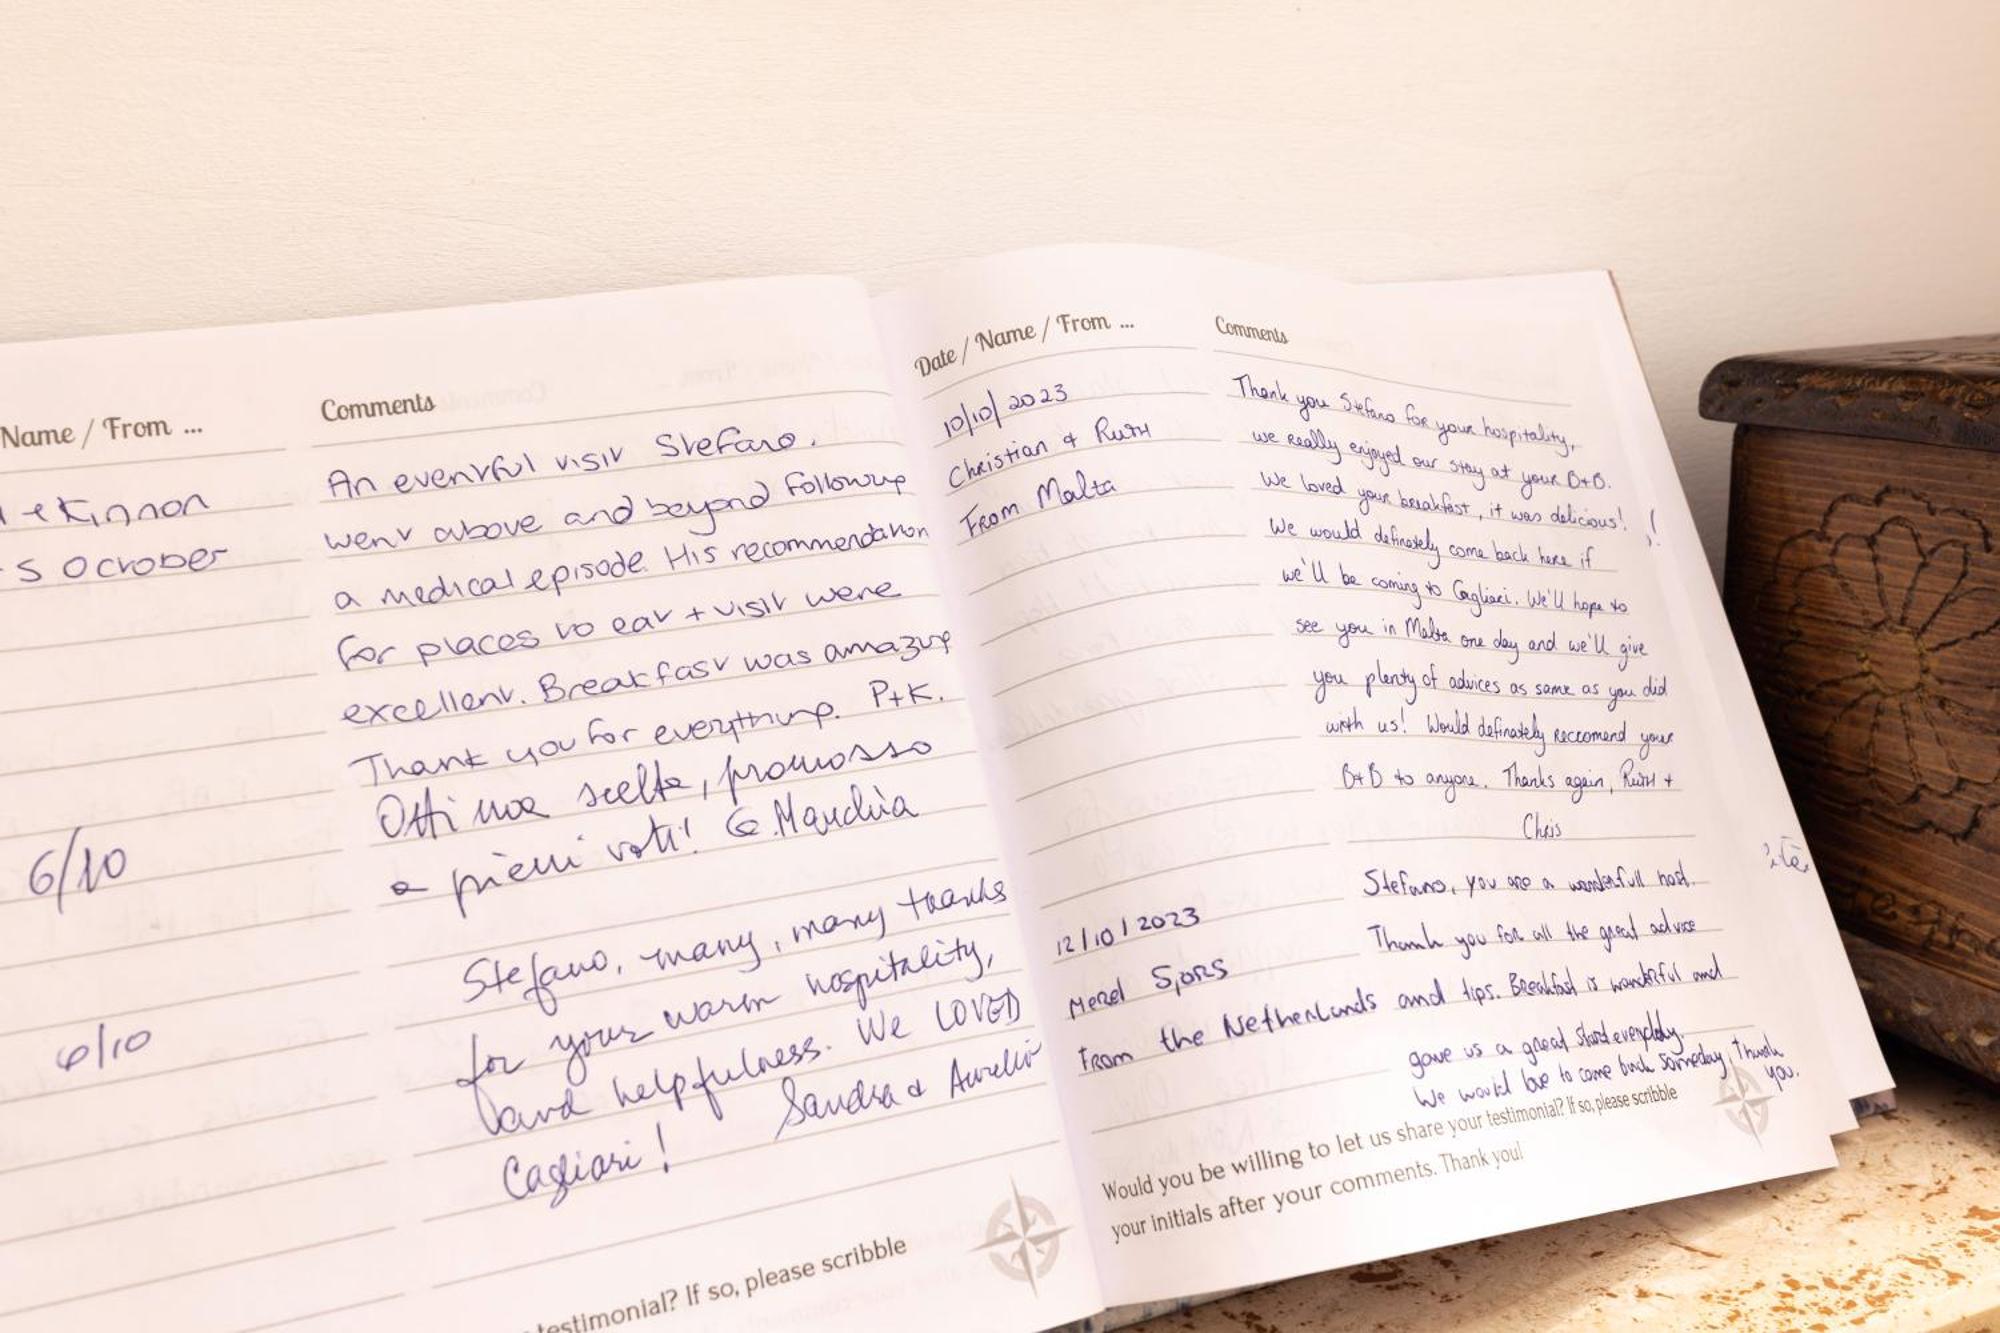 Name / From ...
Comments
Kinnon
5 October
An eventful visit Stefano.
went above and beyond following
a medical episode. His recommendation
for places to eat + visit were
excellent. Breakfast was amazing
Thank you for everything. P+K.
6/10
Ottima scelta, promosso
a pieni voti! G. Marchia
6/10
Stefano, many, many thanks
for your warm hospitality,
and helpfulness. We LOVED
Cagliari! Sandra & Aurelio
testimonial? If so, please scribble
Date / Name / From ...
Comments
10/10/2023
Christian & Ruth
From Malta
Thank you Stefano for your hospitality,
we really enjoyed our stay at your B+B.
We loved your breakfast, it was delicious!!
We would definately come back here if
we'll be coming to Cagliari. We'll hope to
see you in Malta one day and we'll give
you plenty of advices as same as you did
with us! Would definately reccomend your
B+B to anyone. Thanks again, Ruth +
Chris
12/10/2023
Merel Sjors
From the Netherlands
Stefano, you are a wonderfull host.
Thank you for all the great advice
and tips. Breakfast is wonderful and
gave us a great start everyday.
We would love to come back someday, Thank
you.
Would you be willing to let us share your testimonial? If so, please scribble
your initials after your comments. Thank you!